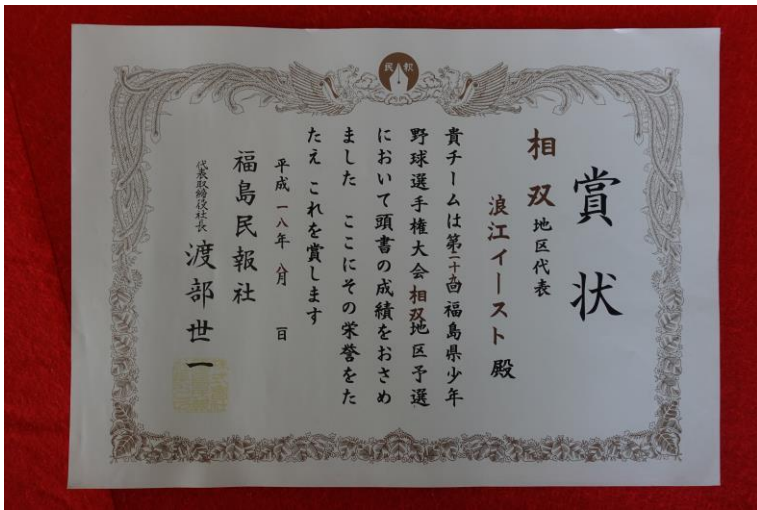 民報
賞状
相双地区代表
浪江イースト殿
貴チームは第二十九回福島県少年
野球選手権大会相双地区予選
において頭書の成績をおさめ
ました ここにその栄誉をた
たえ これを賞します
平成一八年 八月 日
福島民報社
代表取締役社長 渡部世一